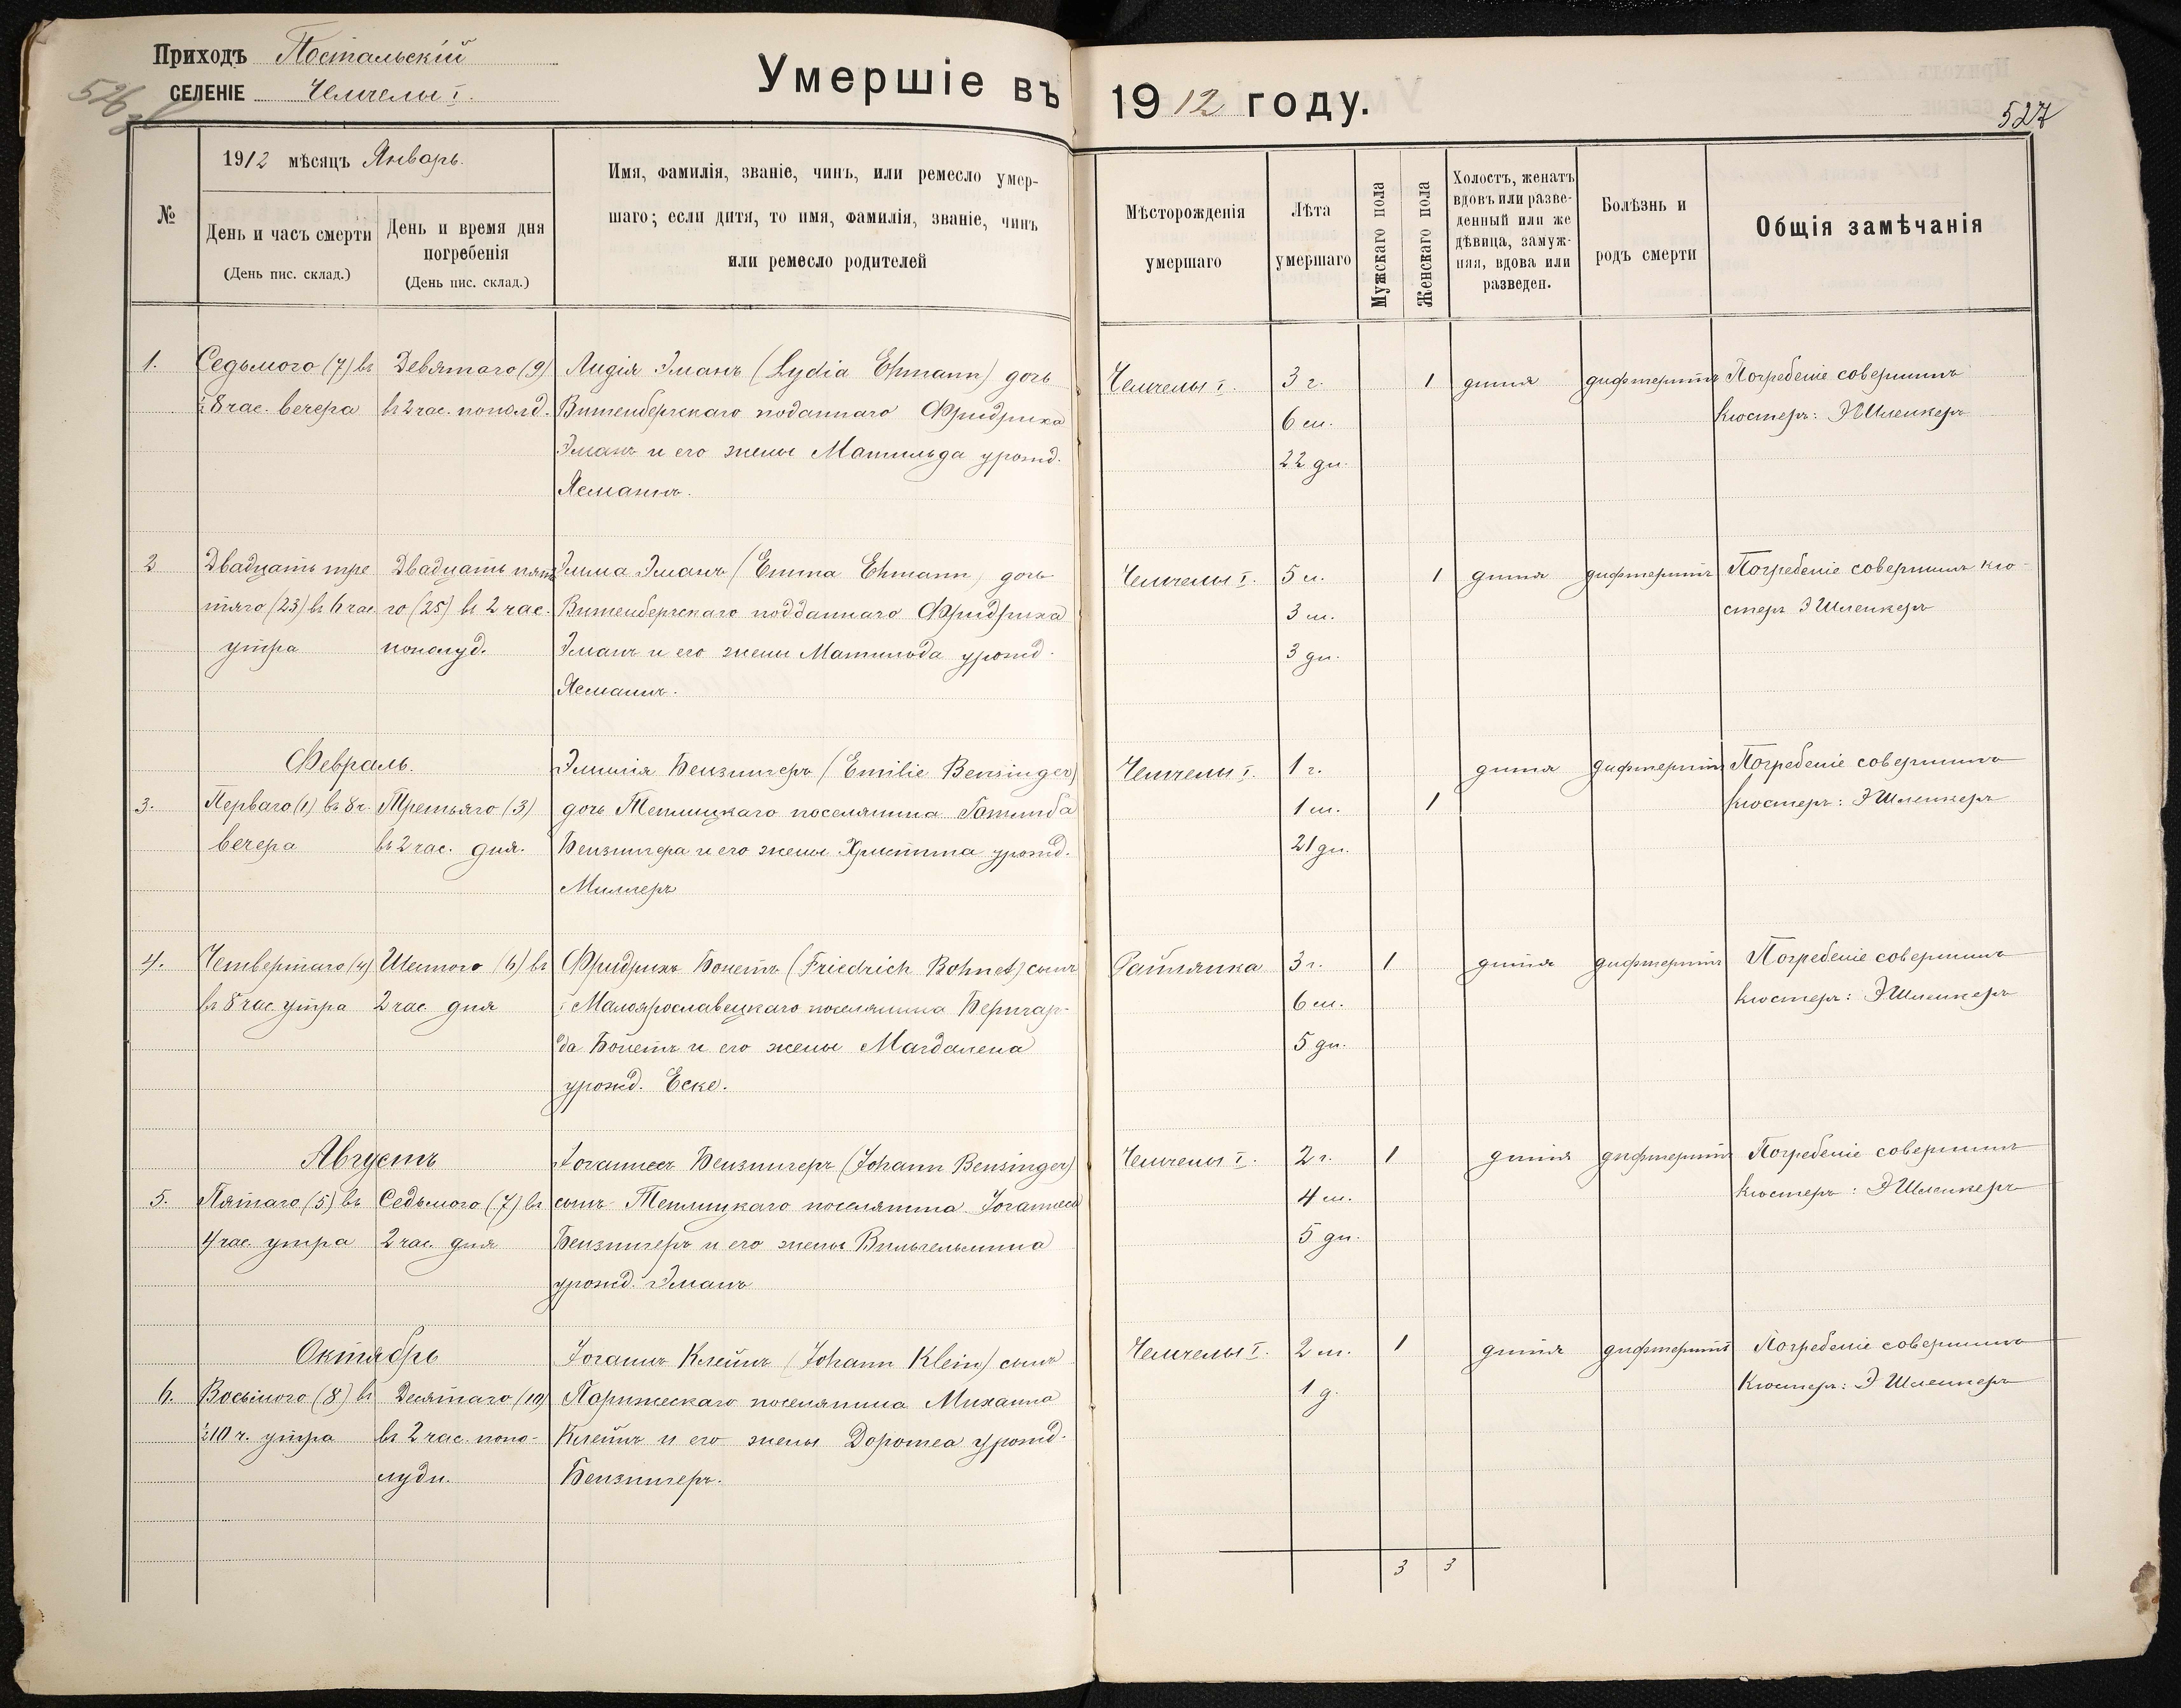 Приходъ Постальскій
СЕЛЕНІЕ Чемчелы I.
526
Умершіе въ 1912 году.
527
№
1912 мѣсяцъ Январь.
День и часъ смерти
(День пис. склад.)
День и время дня
погребенія
(День пис. склад.)
Имя, фамилія, званіе, чинъ, или ремесло умер-
шаго; если дитя, то имя, фамилія, званіе, чинъ
или ремесло родителей
Мѣсторожденія
умершаго
Лѣта
умершаго
Мужскаго пола
Женскаго пола
Холостъ, женатъ
вдовъ или разве-
денный или же
дѣвица, замуж-
няя, вдова или
разведен.
Болѣзнь и
родъ смерти
Общія замѣчанія
1.
Седьмого (7) въ
½8 час. вечера
Девятаго (9)
въ 2 час. пополд.
Лидія Эманъ (Lydia Ehmann) дочь
Витенбергскаго поданнаго Фридриха
Эманъ и его жены Матильда урожд.
Ясманнъ.
Чемчелы I.
3 г.
6 м.
22 дн.
1
дитя
дифтеритъ
Погребеніе совершилъ
кюстеръ: Э Шленкеръ
2
Двадцать тре
тяго (23) въ 6 час
утра
Двадцать пята
го (25) въ 2 час.
пополуд.
Эмма Эманъ (Emma Ehmann) дочь
Витенбергскаго подданнаго Фридриха
Эманъ и его жены Матильда урожд.
Ясманнъ.
Чемчелы I.
5 л.
3 м.
3 дн.
1
дитя
дифтеритъ
Погребеніе совершилъ кю-
стеръ Э Шленкеръ
Февраль.
3.
Перваго (1) въ 8 ч.
вечера
Третьяго (3)
въ 2 час. дня.
Эмилія Бензингеръ (Emilie Bensinger)
дочь Теплицкаго поселянина Готлиба
Бензингера и его жены Христина урожд.
Миллеръ
Чемчелы I.
1 г.
1 м.
21 дн.
1
дитя
дифтеритъ
Погребеніе совершилъ
кюстеръ: Э Шленкеръ
4.
Четвертаго (4)
въ 8 час. утра
Шестого (6) въ
2 час дня
Фридрихъ Бонетъ (Friedrich Bohnet) сынъ
Малоярославецкаго поселянина Бернгар-
да Бонетъ и его жены Магдалена
урожд. Еске.
Райлянка
3 г.
6 м.
5 дн.
1
дитя
дифтеритъ
Погребеніе совершилъ
кюстеръ: Э Шленкеръ
Августъ
5.
Пятаго (5) въ
4 час. утра
Седьмого (7) въ
2 час. дня
Іоганнесъ Бензингеръ (Johann Bensinger)
сынъ Теплицкаго поселянина Іоганнеса
Бензингеръ и его жены Вильгельмина
урожд. Эманъ
Чемчелы I.
2 г.
4 м.
5 дн.
1
дитя
дифтеритъ
Погребеніе совершилъ
кюстеръ: Э Шленкеръ
Октябрь
6.
Восьмого (8) въ
½10 ч. утра
Десятаго (10)
въ 2 час. попо-
лудн.
Іоганнъ Клейнъ (Johann Klein) сынъ
Парижескаго поселянина Михаила
Клейнъ и его жены Доротеа урожд.
Бензингеръ.
Чемчелы I.
2 м.
1 д.
1
дитя
дифтеритъ
Погребеніе совершилъ
Кюстеръ: Э Шленкеръ
3
3